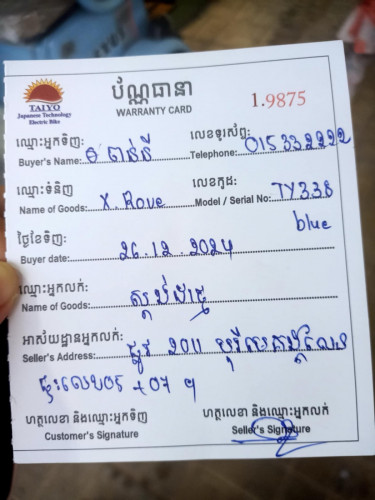 TAIYO
Japanese Technology
Electric Bike
ប័ណ្ណធានា
WARRANTY CARD
1.9875
ឈ្មោះអ្នកទិញ:
Buyer's Name:
លេខទូរស័ព្ទ:
Telephone: 015 332222
ឈ្មោះទំនិញ
Name of Goods: X. Rove
លេខកូដ:
Model / Serial No: TY338
blue
ថ្ងៃខែទិញ:
Buyer date: 26.12.2024
ឈ្មោះអ្នកលក់:
Name of Goods:
អាស័យដ្ឋានអ្នកលក់:
Seller's Address: ផ្លូវ 2011
ហត្ថលេខា និងឈ្មោះអ្នកទិញ
Customer's Signature
ហត្ថលេខា និងឈ្មោះអ្នកលក់
Seller's Signature